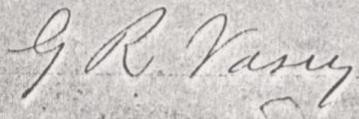 G R Vasey